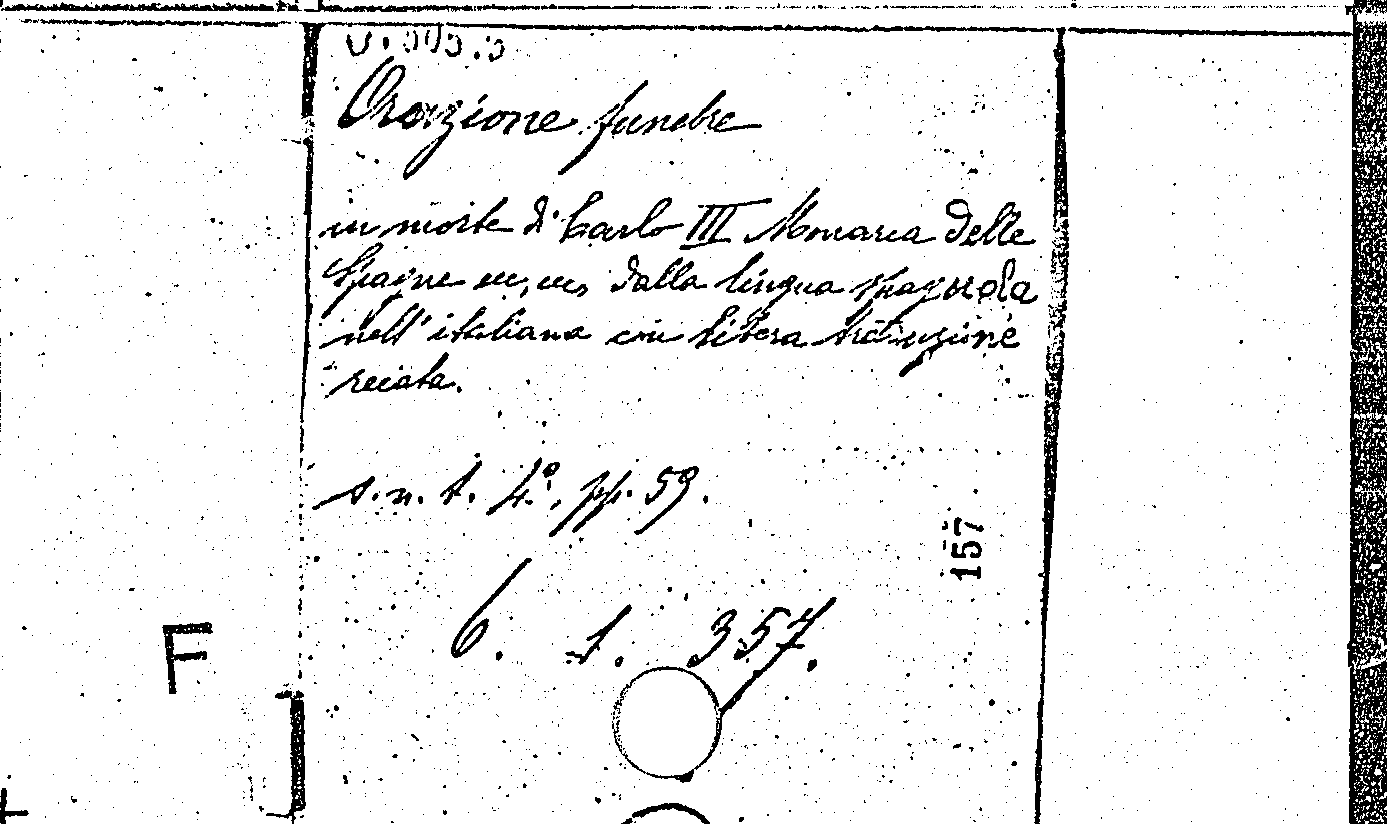 Orazione funebre
in morte di Carlo III Monarca delle
Spagne dalla lingua spagnola
nell'italiana con libera traduzione
recata.
s. n. t. 4°, pp. 59.
157
6. 1. 357.
F